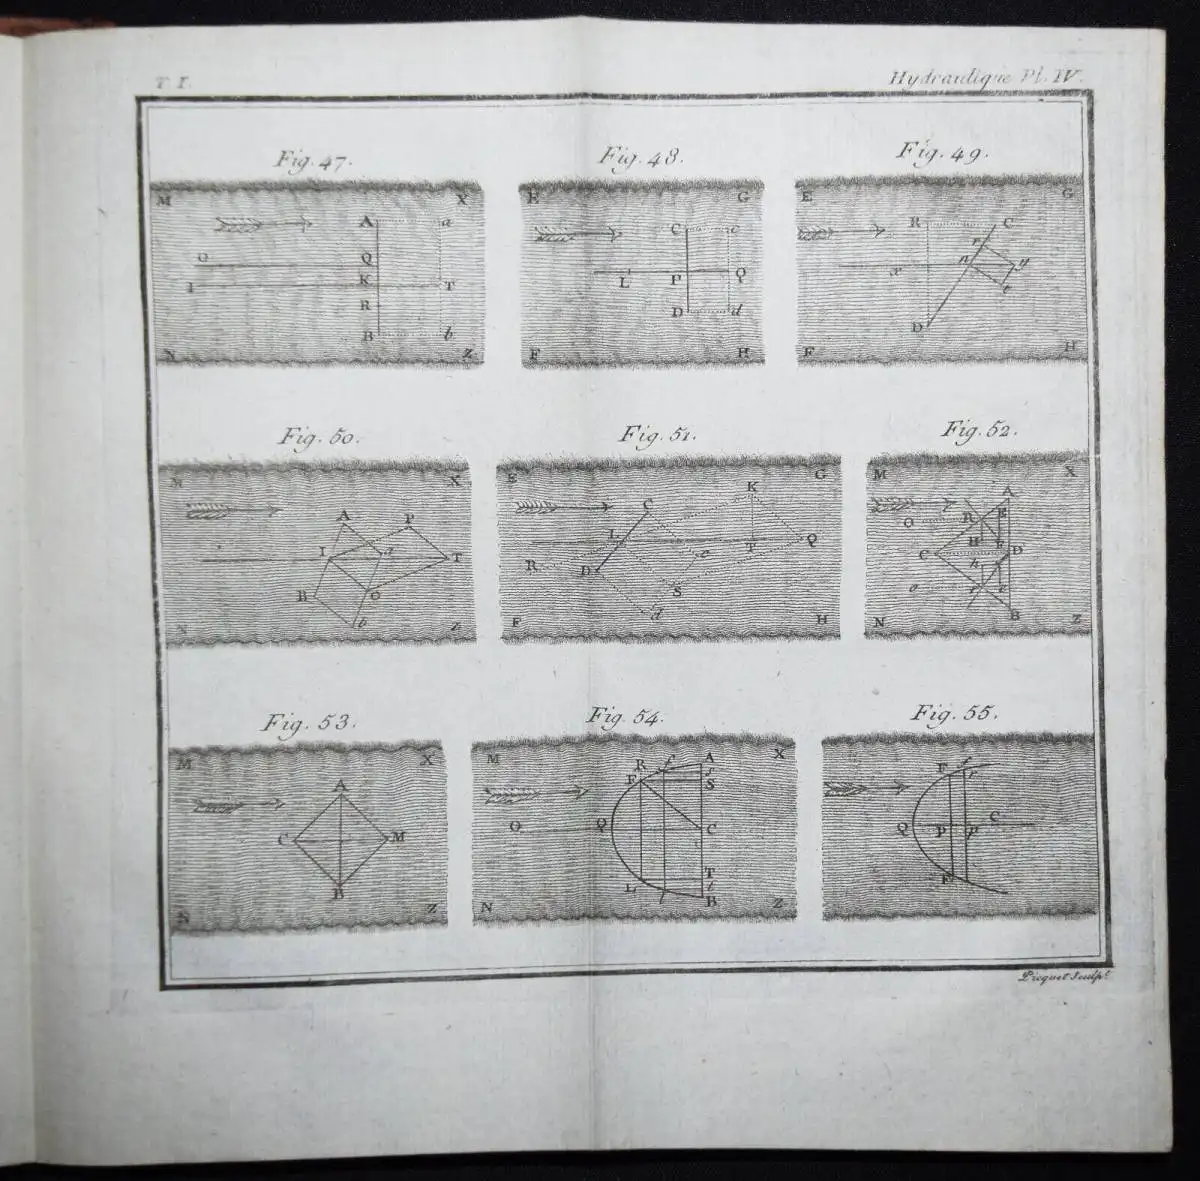 T. I.
Hydraulique Pl. IV.
Fig. 47.
M X
A a
O Q
I K T
R
B b
N Z
Fig. 48.
E G
C c
L P Q
D d
F H
Fig. 49.
E G
R C
r
x n y
t
D
F H
Fig. 50.
M X
A P
I a T
B O
b
N Z
Fig. 51.
E G
C K
L T Q
R D c
S
d
F H
Fig. 52.
M X
A
O R E
H
C D
h
o r e
B
N Z
Fig. 53.
M X
A
C M
B
N Z
Fig. 54.
M R f A X
F S
O Q C
L T
t
B
N Z
Fig. 55.
F f
r
Q P p C
F
Picquet Sculpt.